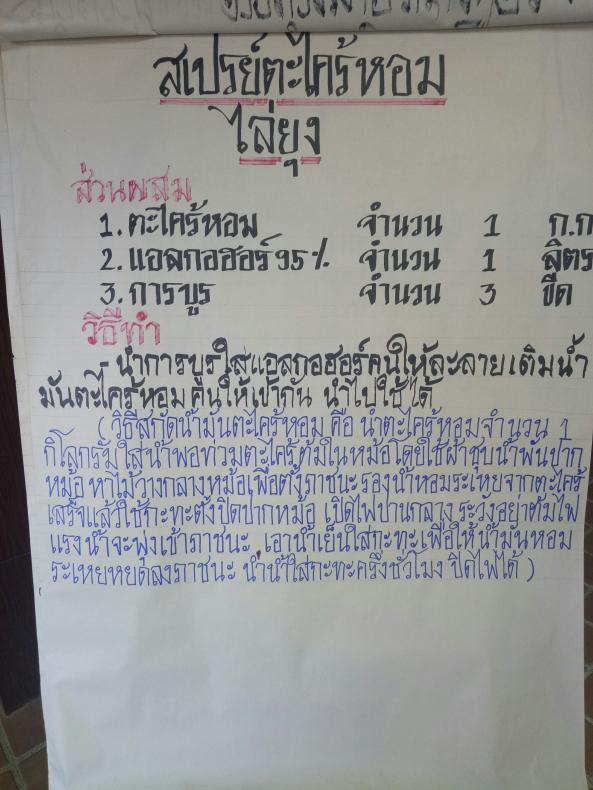 สเปรย์ตะไคร้หอม
ไล่ยุง
ส่วนผสม
1. ตะไคร้หอม จำนวน 1 ก.ก
2. แอลกอฮอร์ 95% จำนวน 1 ลิตร
3. การบูร จำนวน 3 ขีด
วิธีทำ
- นำการบูรใส่แอลกอฮอร์คนให้ละลาย เติมน้ำ
มันตะไคร้หอม คนให้เข้ากัน นำไปใช้ได้
(วิธีสกัดน้ำมันตะไคร้หอม คือ นำตะไคร้หอมจำนวน 1
กิโลกรัมใส่น้ำพอท่วมตะไคร้ต้มในหม้อโดยใช้ผ้าชุบน้ำพันปาก
หม้อ หาไม้วางกลางหม้อเพื่อตั้งภาชนะรองน้ำหอมระเหยจากตะไคร้
เสร็จแล้วใช้กะทะตั้งปิดปากหม้อ เปิดไฟปานกลาง ระวังอย่าต้มไฟ
แรงน้ำจะพุ่งเข้าภาชนะ เอาน้ำเย็นใส่กะทะเพื่อให้น้ำมันหอม
ระเหยหยดลงภาชนะ นำน้ำใส่กะทะครึ่งชั่วโมง ปิดไฟได้)